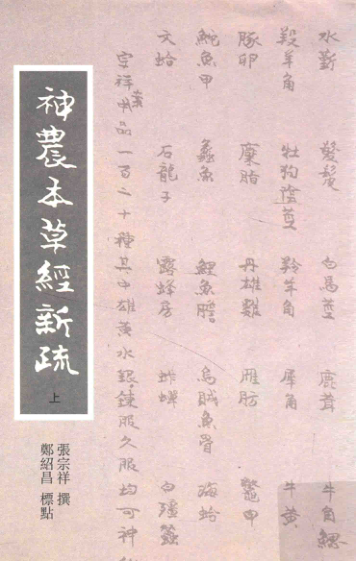 水 髮髲 白馬莖 鹿茸 牛角䚡
羖羊角 牡狗陰莖 羚羊角 犀角 牛黃
豚卵 麋脂 丹雄雞 雁肪 鼈甲
鮀魚甲 蠡魚 鯉魚膽 烏賊魚骨 海蛤
文蛤 石龍子 露蜂房 蚱蟬 白殭蠶
宗祥案中品一百二十種其中雄黃水銀鍊服久服均可神
神農本草經新疏
上
張宗祥 撰
鄭紹昌 標點